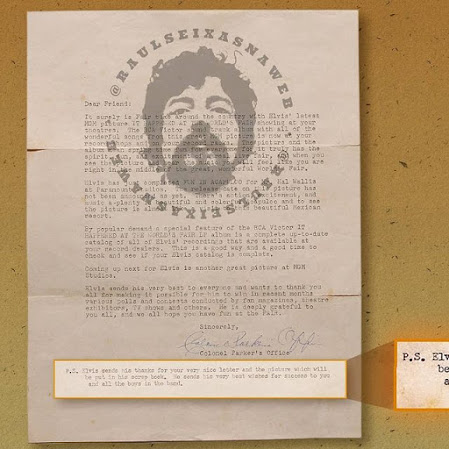 @RAULSEIXASNAWEB
@RAULSEIXASNAWEB
Dear Friend:
It surely is Fair time around the country with Elvis' latest
MGM picture IT HAPPENED AT THE WORLD'S FAIR showing at your
theatres. The RCA Victor sound track album with all of the
wonderful songs from this great MGM picture is now at your
record shops and
spirit when you
see the will feel like you are
right in the of the great, wonderful World's Fair.
Elvis has just completed FUN IN ACAPULCO for Hal Wallis
at Paramount Studios. The release date on this picture has
not been announced as yet. There's action, excitement, and
music a-plenty in beautiful and colorful Acapulco and to see
the picture is almost like a visit to this beautiful Mexican
resort.
By popular demand a special feature of the RCA Victor IT
HAPPENED AT THE WORLD'S FAIR LP album is a complete up-to-date
catalog of all of Elvis' recordings that are available at
your record dealers. This is a good way and a good time to
check and see if your Elvis catalog is complete.
Coming up next for Elvis is another great picture at MGM
Studios.
Elvis sends his very best to everyone and wants to thank you
all for making it possible for him to win in recent months
various polls and contests conducted by fan magazines, theatre
exhibitors, TV shows and others. He is deeply grateful to
you all, and we all hope you have fun at the FAIR.
Sincerely,
Colonel Parker's Office
P.S. Elvis sends his thanks for your very nice letter and the picture which will
be put in his scrap book. He sends his very best wishes for success to you
and all the boys in the band.
P.S. Elvi
be
a